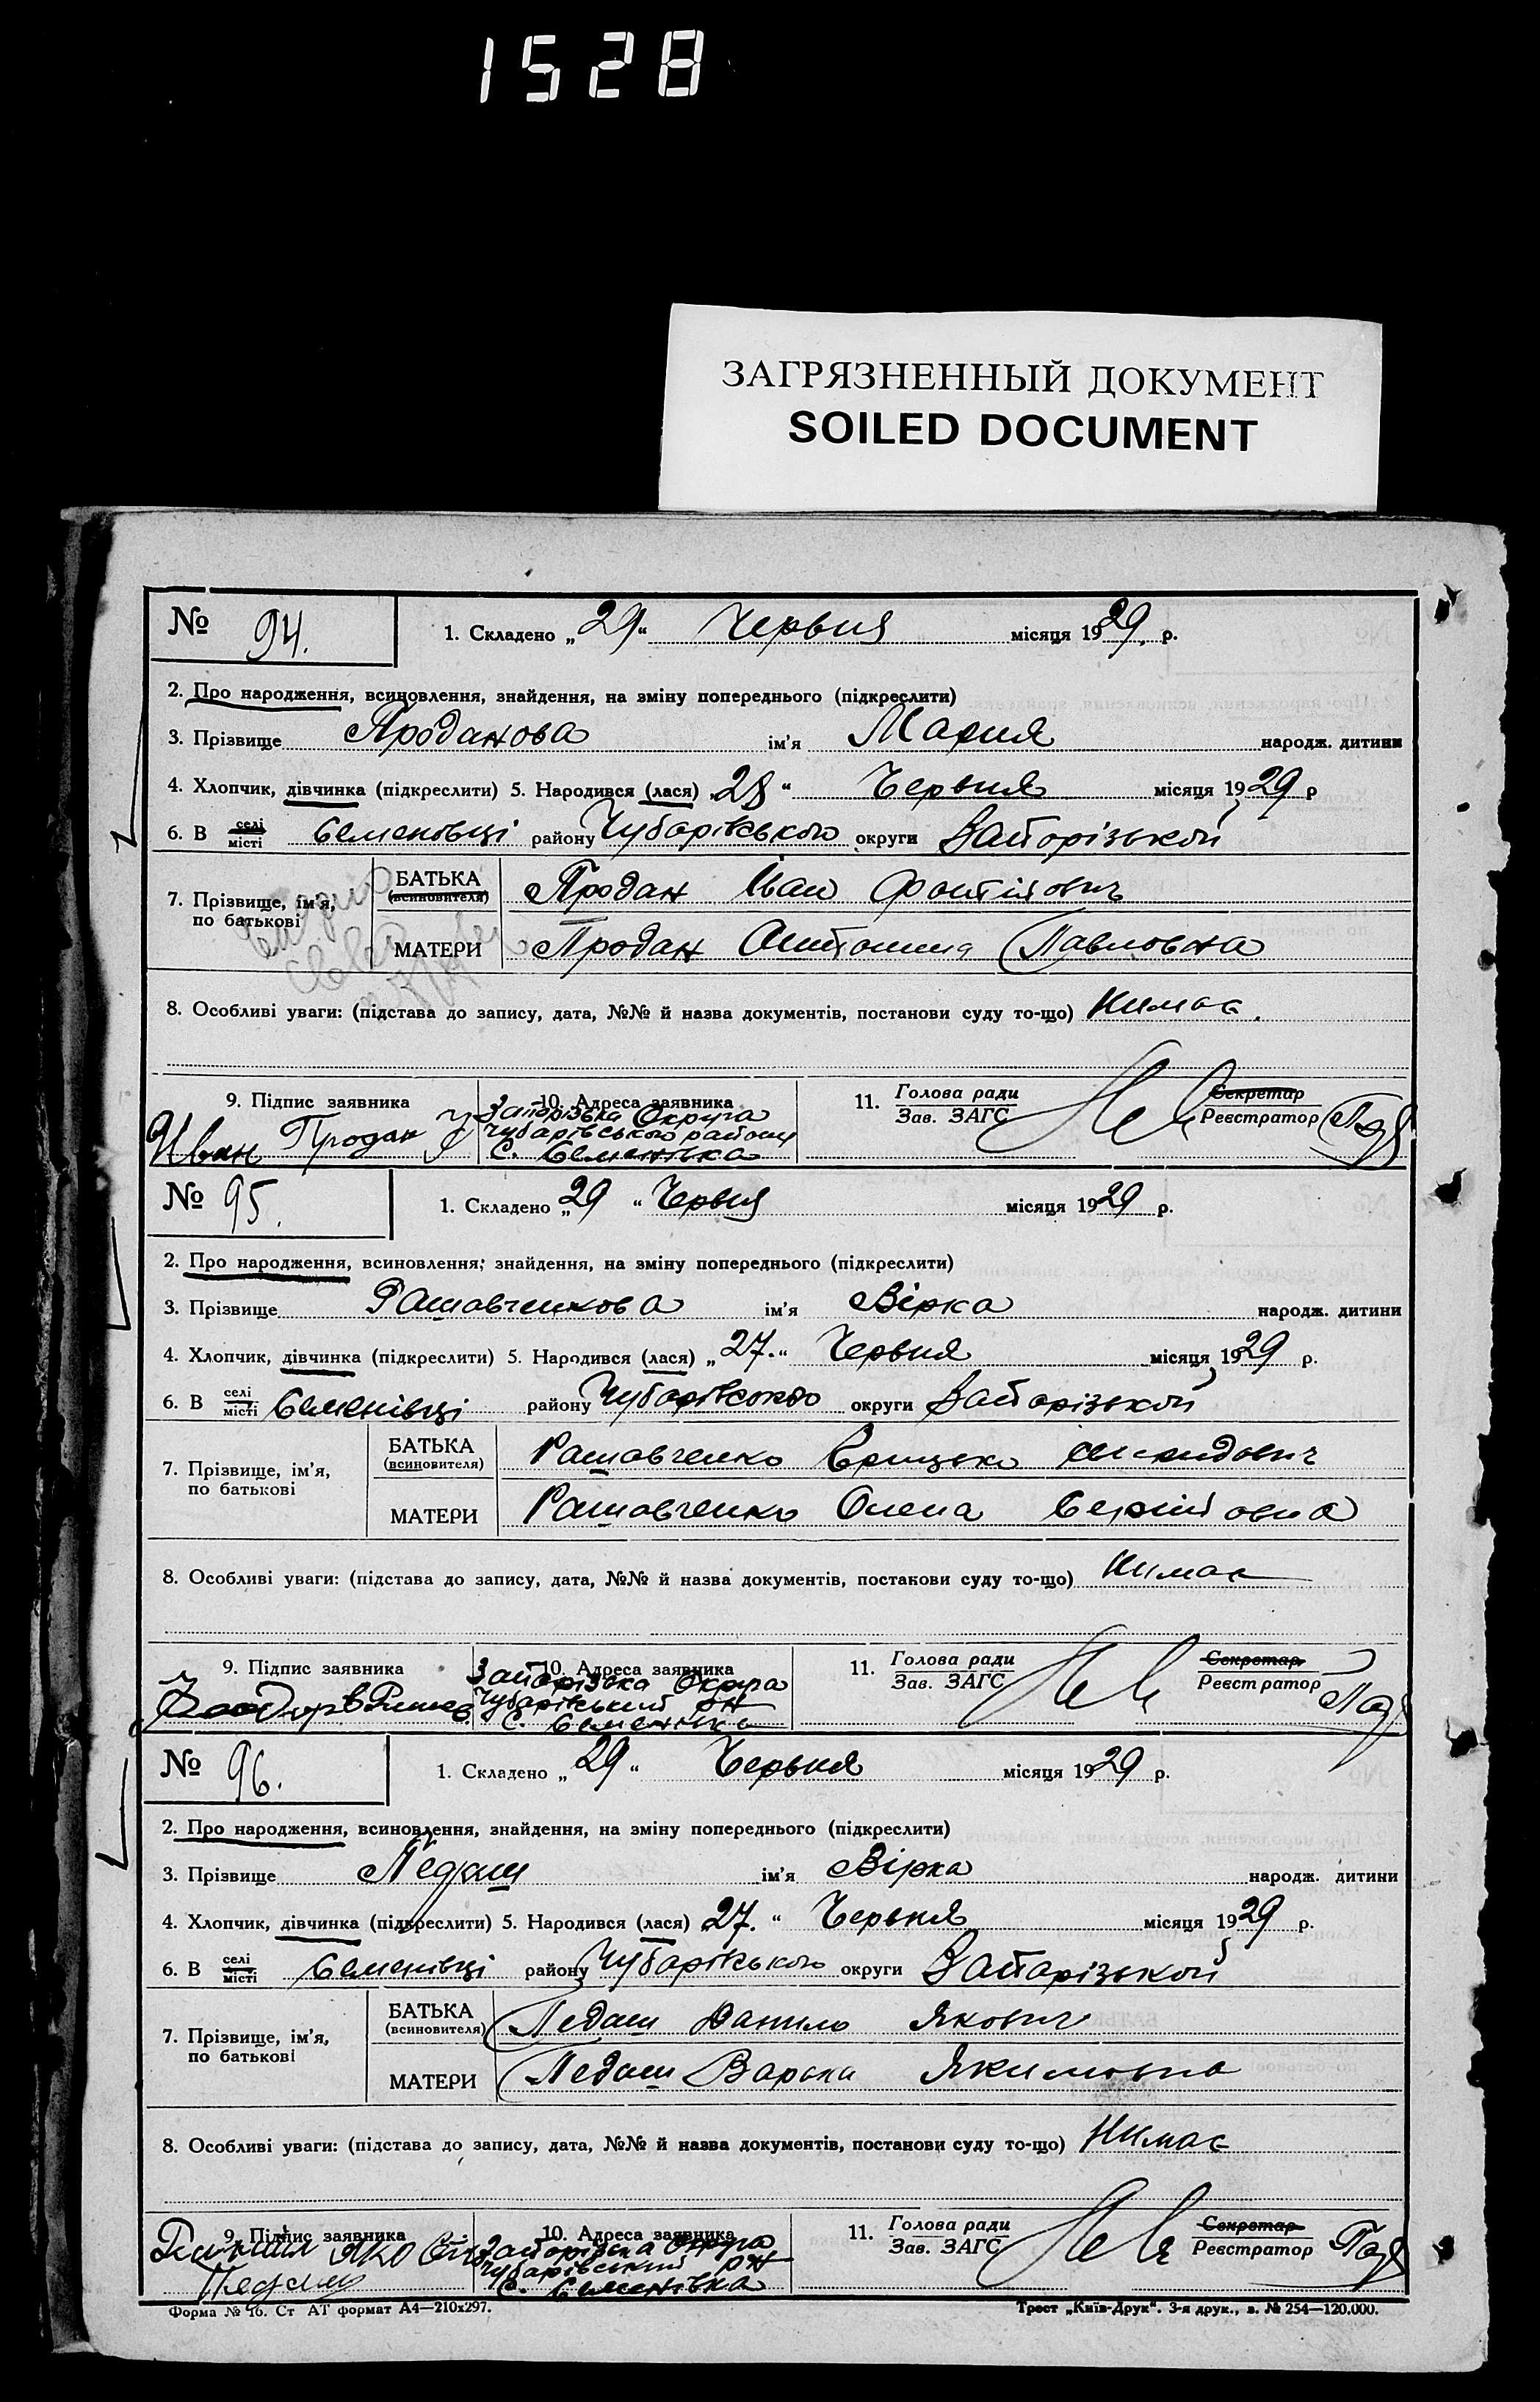 1528
ЗАГРЯЗНЕННЫЙ ДОКУМЕНТ
SOILED DOCUMENT
№ 94. 1. Складено „29“ Червня місяця 1929. р.
2. Про народження, всиновлення, знайдення, на зміну попереднього (підкреслити)
3. Прізвище Проданова ім'я Мария народж. дитини
4. Хлопчик, дівчинка (підкреслити) 5. Народився (лася) „28“ Червня місяця 1929 р
6. В селі місті Семеновці району Чубарівського округи Запорізькой
7. Прізвище, ім'я, по батькові
БАТЬКА (всиновителя) Продан Іван
МАТЕРИ Продан Антонина Павловна
8. Особливі уваги: (підстава до запису, дата, №№ й назва документів, постанови суду то-що) Нимає.
9. Підпис заявника 10. Адреса заявника 11. Голова ради Зав. ЗАГС Секретар Реєстратор
Иван Продан
Запорізька Округа
Чубарівського району
с. Семенівка
№ 95. 1. Складено „29“ Червня місяця 1929 р.
2. Про народження, всиновлення, знайдення, на зміну попереднього (підкреслити)
3. Прізвище Рашавченкова ім'я Вірка народж. дитини
4. Хлопчик, дівчинка (підкреслити) 5. Народився (лася) „27.“ Червня місяця 1929 р.
6. В селі місті Семенівці району Чубарівського округи Запорізькой
7. Прізвище, ім'я, по батькові
БАТЬКА (всиновителя) Рашавченко Грицько
МАТЕРИ Рашавченко Олена
8. Особливі уваги: (підстава до запису, дата, №№ й назва документів, постанови суду то-що) Нимає
9. Підпис заявника 10. Адреса заявника 11. Голова ради Зав. ЗАГС Секретар Реєстратор
Запорізька Округа
Чубарівський рн
с. Семенівка
№ 96. 1. Складено „29“ Червня місяця 1929 р.
2. Про народження, всиновлення, знайдення, на зміну попереднього (підкреслити)
3. Прізвище Педаш ім'я Вірка народж. дитини
4. Хлопчик, дівчинка (підкреслити) 5. Народився (лася) „27.“ Червня місяця 1929 р.
6. В селі місті Семенівці району Чубарівського округи Запорізькой
7. Прізвище, ім'я, по батькові
БАТЬКА (всиновителя) Педаш Данило Якович
МАТЕРИ Педаш Варька Якимовна
8. Особливі уваги: (підстава до запису, дата, №№ й назва документів, постанови суду то-що) Нимає
9. Підпис заявника 10. Адреса заявника 11. Голова ради Зав. ЗАГС Секретар Реєстратор
Запорізька Округа
Чубарівський рн
с. Семенівка
Форма № 16. Ст АТ формат А4—210x297. Трест „Київ-Друк“. 3-я друк., в. № 254—120.000.